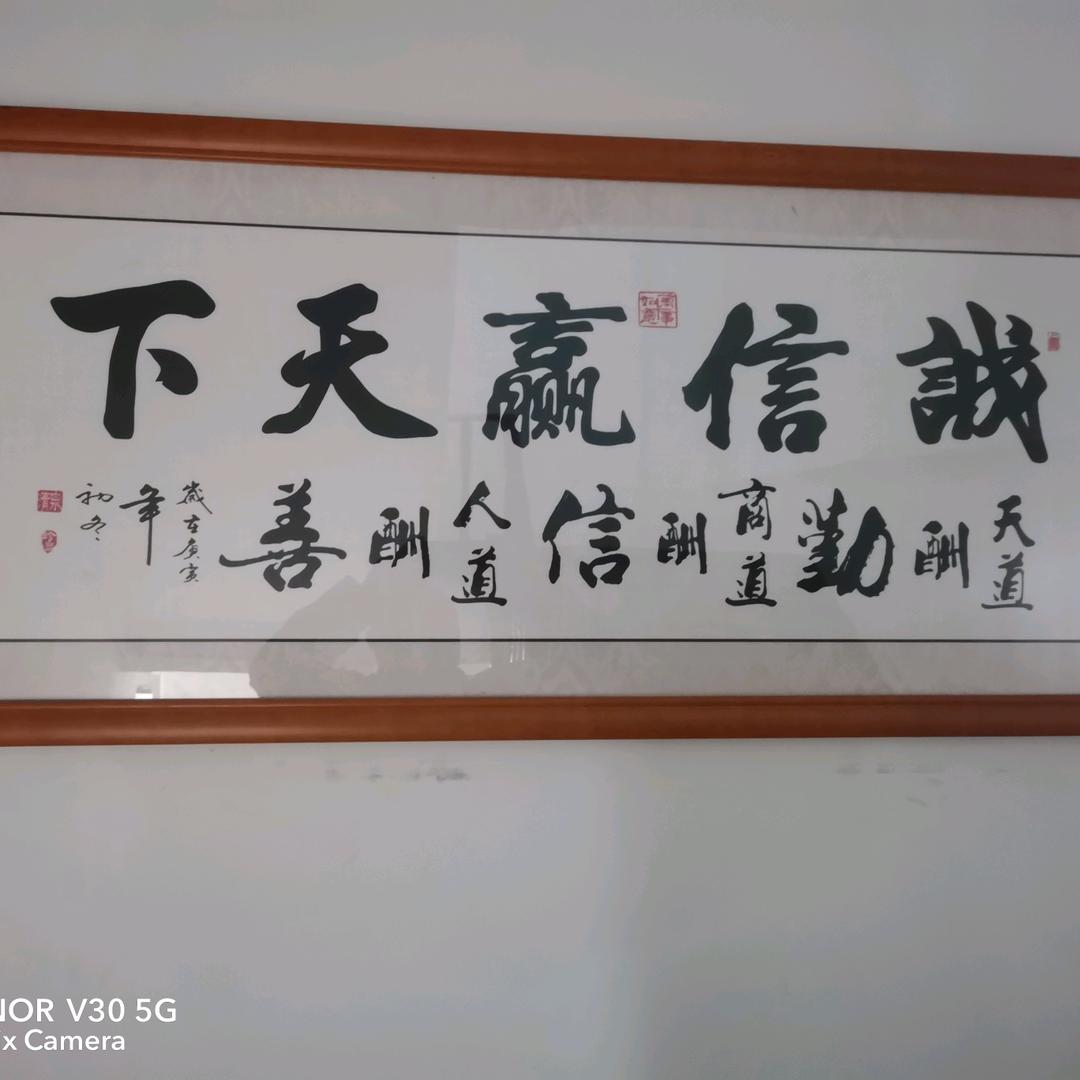 誠信贏天下
天道酬勤商道酬信人道酬善
歲在庚寅
年
初冬
NOR V30 5G
x Camera